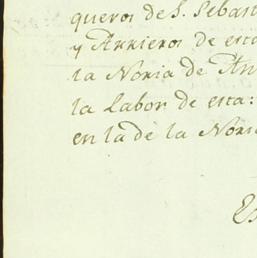 queros de S. Sebast
y Arrieros de esta
la Noria de An
la Labor de esta:
en la de la Noria
Es